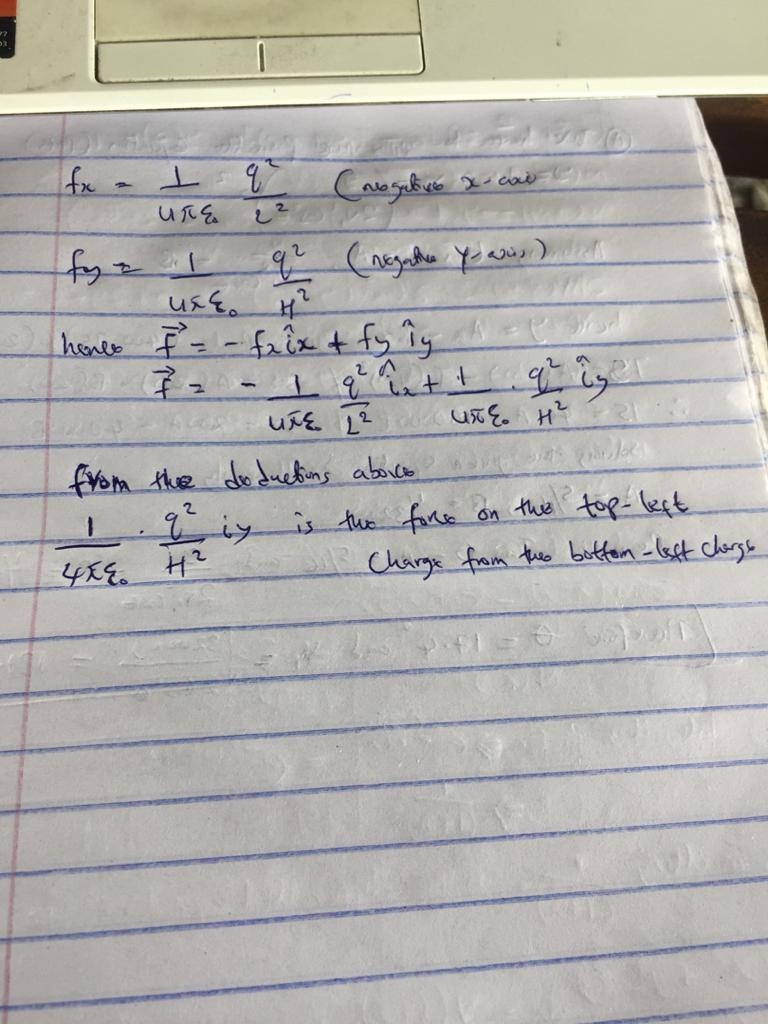 fx = 1/4πε₀ q²/L² (negative x-axis
fy = 1/4πε₀ q²/H² (negative y-axis)
hence F⃗ = - fx îx + fy îy
F⃗ = - 1/4πε₀ q²/L² îx + 1/4πε₀ . q²/H² îy
from the deductions above
1/4πε₀ . q²/H² iy is the force on the top-left
Charge from the bottom-left charge